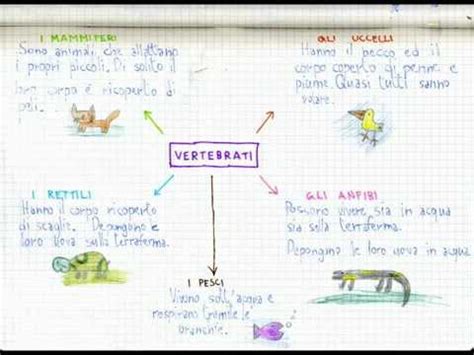 I MAMMIFERI
Sono animali che allattano
i propri piccoli. Di solito il
loro corpo è ricoperto di
peli.
GLI UCCELLI
Hanno il becco ed il
corpo coperto di penne e
piume. Quasi tutti sanno
volare.
VERTEBRATI
I RETTILI
Hanno il corpo ricoperto
di scaglie. Depongono e
loro uova sulla terraferma.
GLI ANFIBI
Possono vivere sia in acqua
sia sulla terraferma.
Depongono le loro uova in acqua
I PESCI
Vivono sott'acqua e
respirano tramite le
branchie.